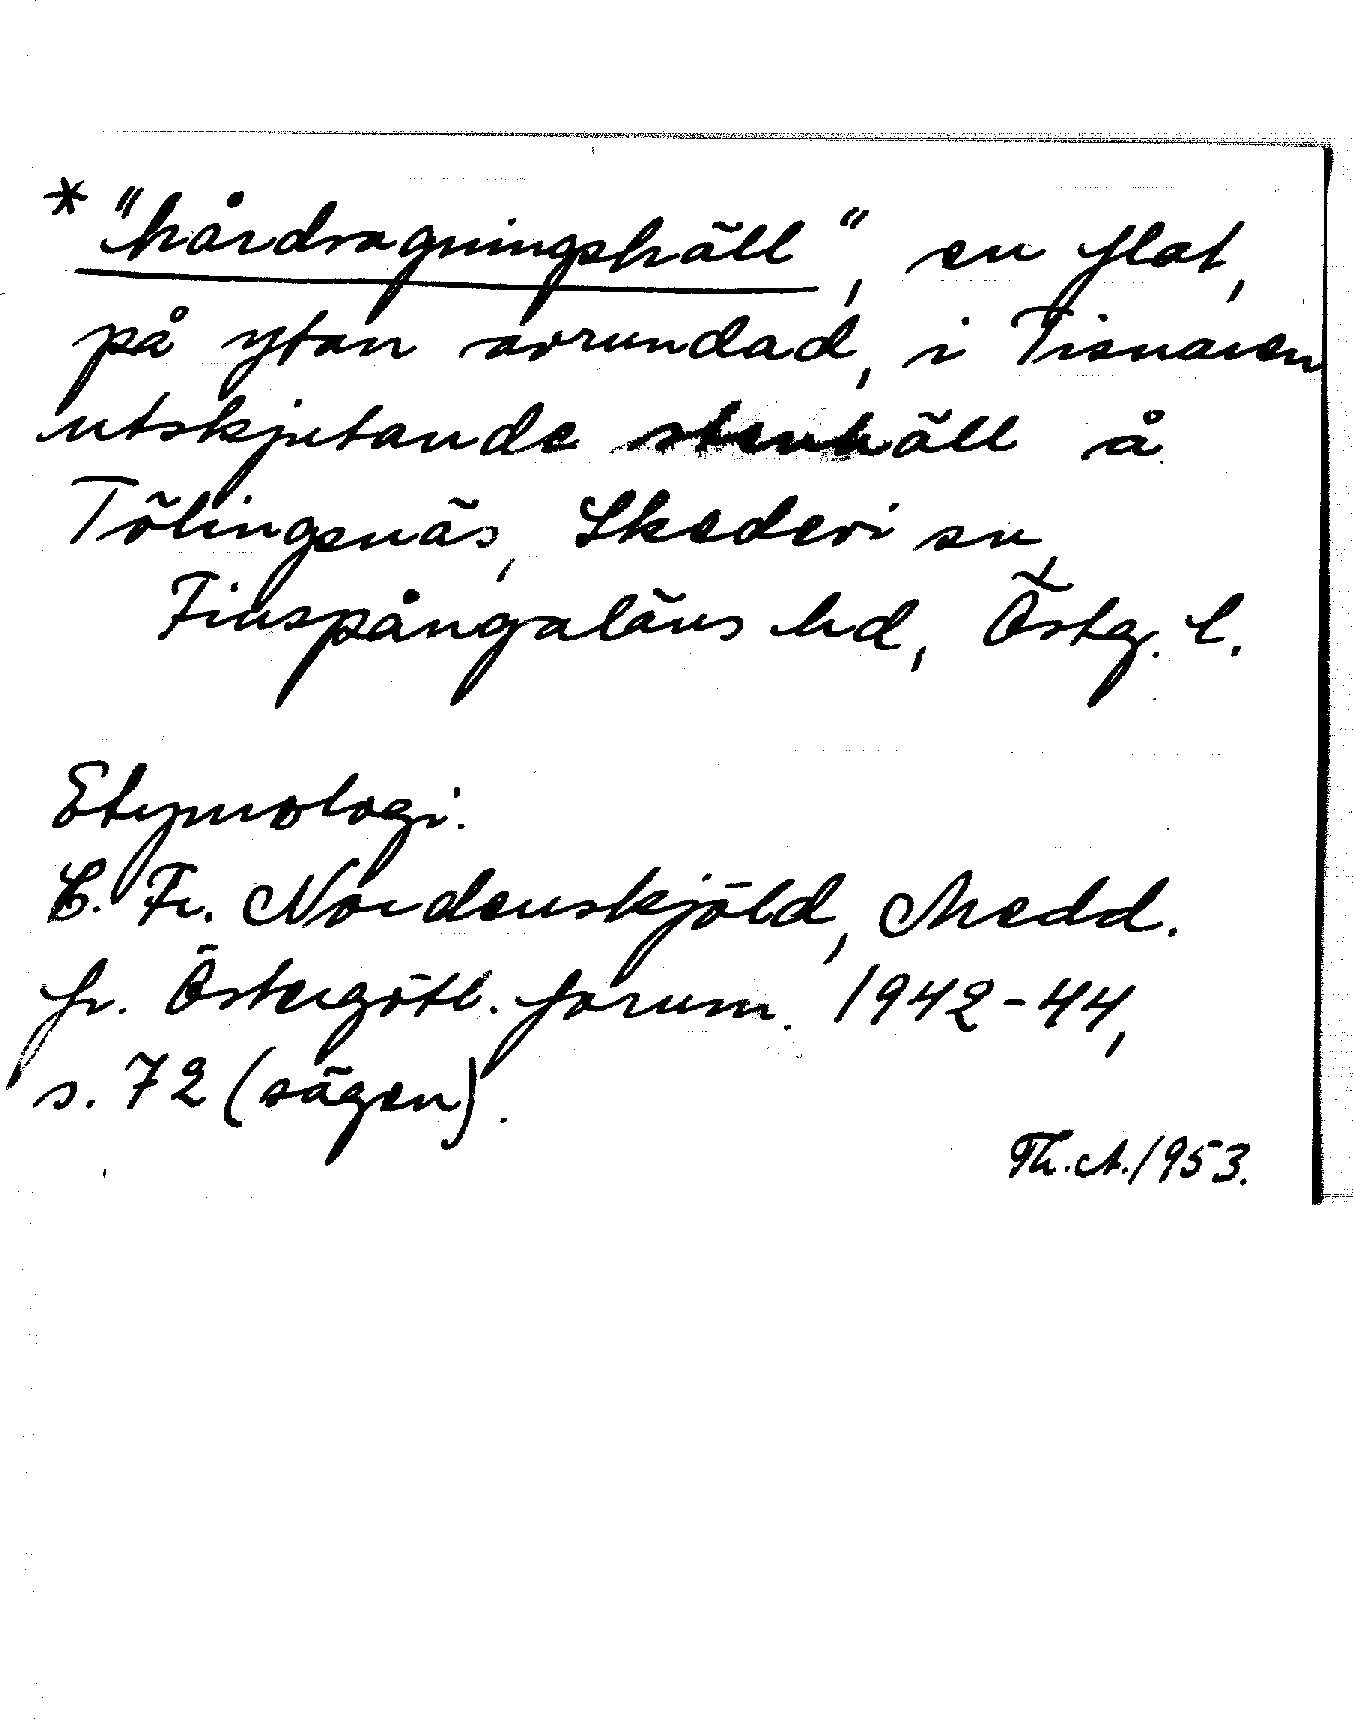 * "hårdragningshäll", en flat,
på ytan avrundad, i Tisnaren
utskjutande stenhäll å
Tölingsnäs, Skedevi sn,
Finspångaläns hd, Östg. l.
Etymologi.
C. Fr. Nordenskjöld, Medd.
fr. Östergötl. fornm. 1942-44,
s. 72 (sägen).
Th. A. /1953.